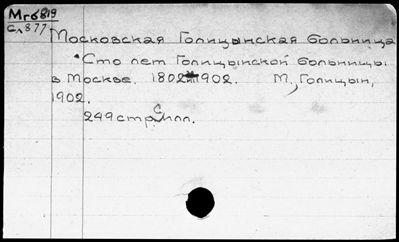 Мг6819
Сл877
Московская Голицынская больница
Сто лет Голицынской больницы
в Москве. 1802-1902. М., Голицын,
1902.
249 стр. с илл.